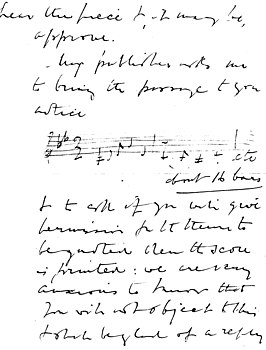 hear the piece & it may be,
approve.
My publisher asks me
to bring the passage to your
notice
etc
about 16 bars
& to ask if you will give
permission for the theme to
be quoted when the score
is printed: we are very
anxious to know that
you will not object to this
& shd be glad of a reply